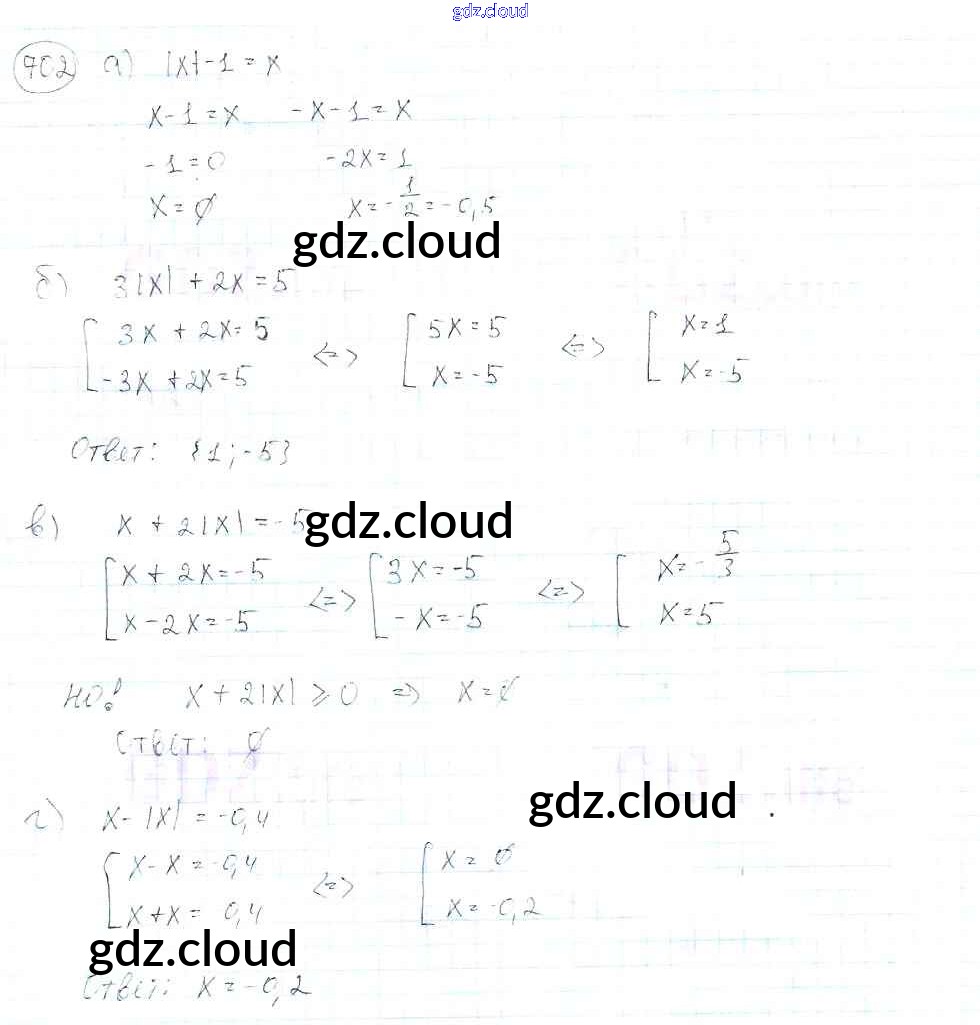 gdz.cloud
702 а) |x|-1=x
x-1=x -x-1=x
-1=0 -2x=1
x=∅ x=-1/2=-0,5
gdz.cloud
б) 3|x|+2x=5
[ 3x+2x=5 <=> [ 5x=5 <=> [ x=1
-3x+2x=5 x=-5 x=-5
Ответ: {1;-5}
в) x+2|x|=-5 gdz.cloud
[ x+2x=-5 <=> [ 3x=-5 <=> [ x=-5/3
x-2x=-5 -x=-5 x=5
НО! x+2|x|≥0 => x=∅
Ответ: ∅
gdz.cloud
г) x-|x|=-0,4
[ x-x=-0,4 <=> [ x=∅
x+x= 0,4 x=-0,2
gdz.cloud
Ответ: x=-0,2